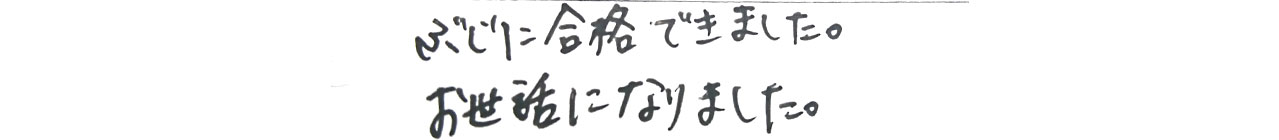 ぶじに合格できました。
お世話になりました。